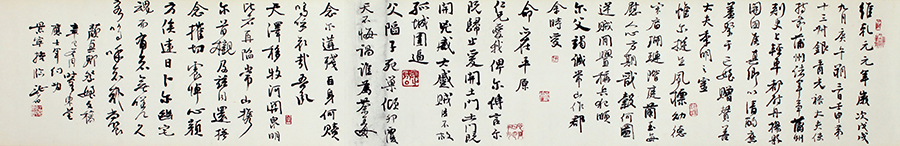 維乾元元年歲次戊戌
九月庚午朔三日壬申第
十三叔銀青光祿大夫使
持節蒲州諸軍事蒲州
刺史上輕車都尉丹楊縣
開國侯真卿以清酌庶
羞祭于亡姪贈贊善
大夫季明之靈
惟爾挺生夙標幼德
宗廟瑚璉階庭蘭玉每
慰人心方期戩穀何圖
逆賊間釁稱兵犯順
爾父竭誠常山作郡
余時受
命亦在平原
仁兄愛我俾爾傳言爾
既歸止爰開土門土門既
開兇威大蹙賊臣不救
孤城圍逼
父陷子死巢傾卵覆
天不悔禍誰為荼毒
念爾遘殘百身何贖
嗚呼哀哉吾承
天澤移牧河關泉明
比者再陷常山
爾首櫬及茲同還撫
念摧切震悼心顏
方俟遠日卜爾幽宅
魂而有知無嗟久
客嗚呼哀哉尚饗